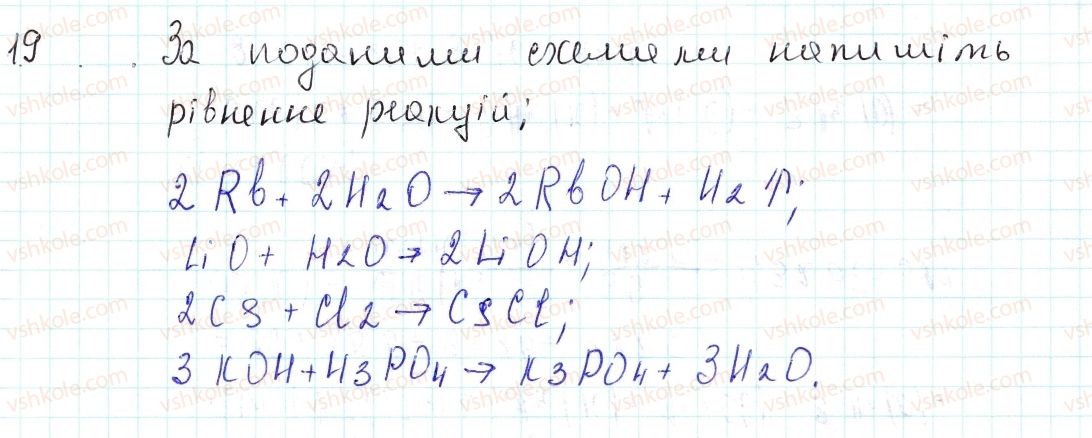 19 . . За поданими схемами напишіть
рівненне реакцій;
2Rb + 2H2O → 2RbOH + H2↑;
LiO + H2O → 2LiOH;
2Cs + Cl2 → CsCl;
3KOH + H3PO4 → K3PO4 + 3H2O.
vshkole.com